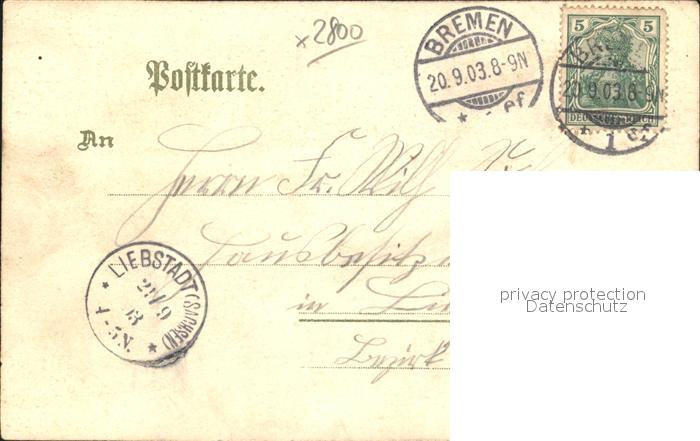 x 2800
BREMEN
20.9.03.8-9N
* ef
5 5
DEUTSCHES REICH
BREMEN
20.9.03.8-9N
* 1 ef
Postkarte.
An
Herrn Fr. Wilh
Hausbesitz
in
Bezirk
* LIEBSTADT (SACHSEN) *
21/9
03
4-5N.
privacy protection
Datenschutz